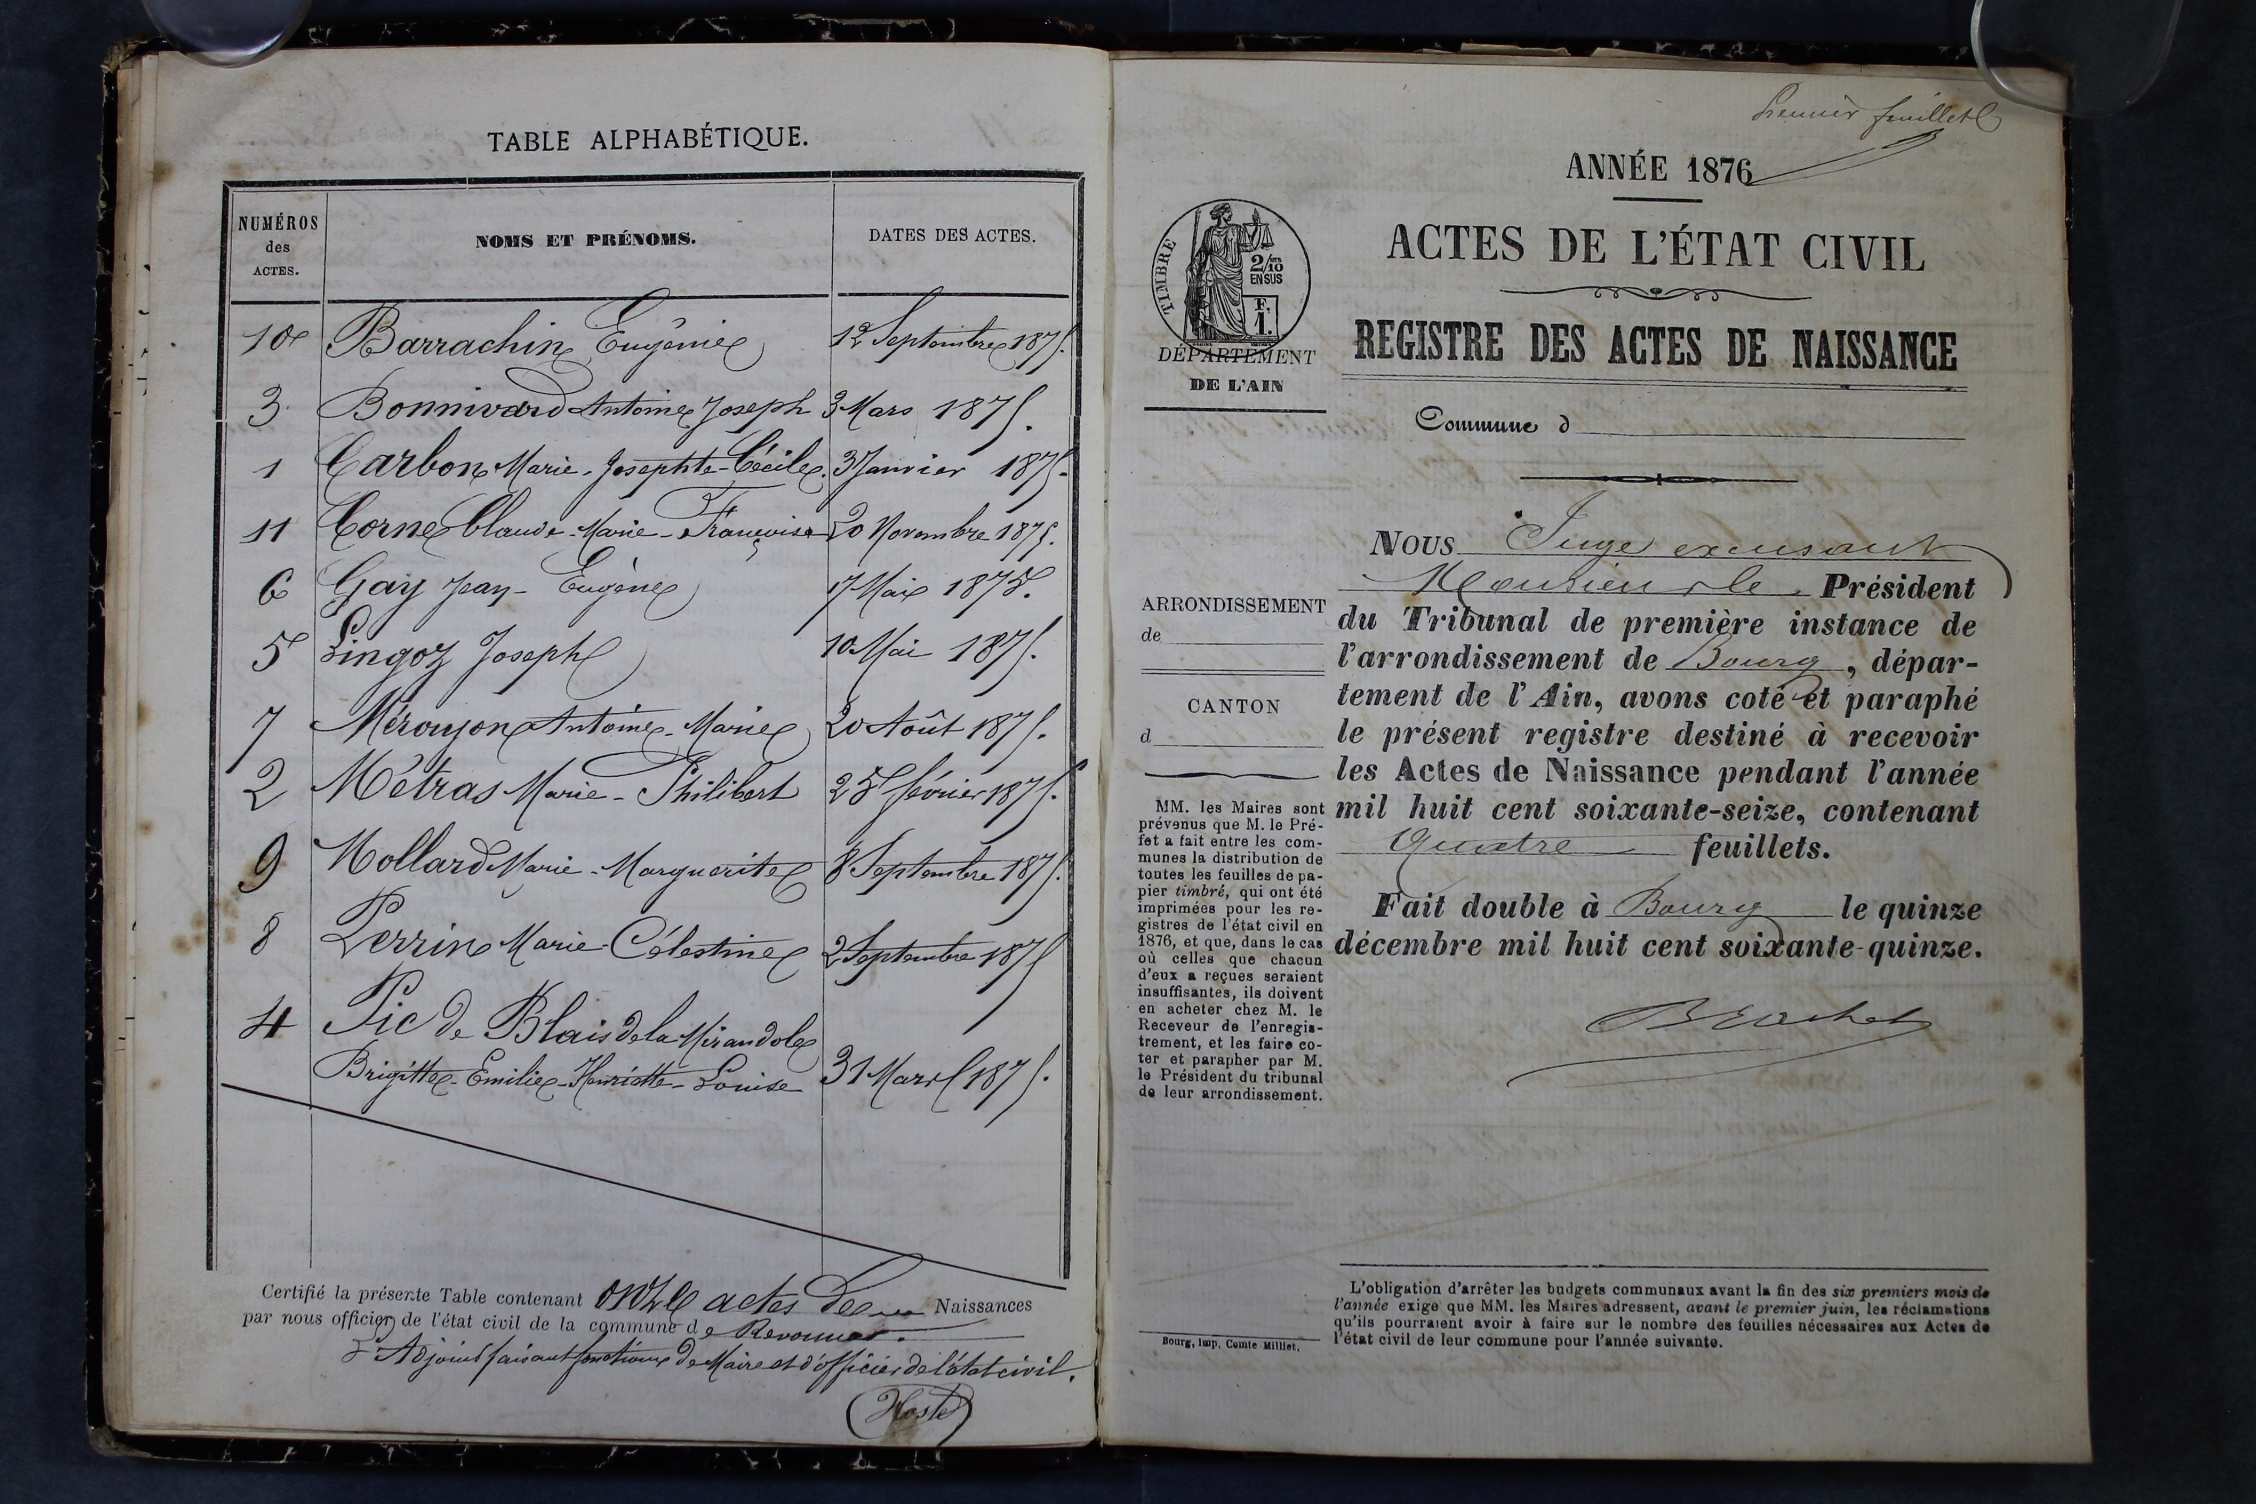 TABLE ALPHABÉTIQUE.
NUMÉROS des ACTES. NOMS ET PRÉNOMS. DATES DES ACTES.
10 Barrachin Eugénie 12 Septembre 1875.
3 Bonnivard Antoine Joseph 3 Mars 1875.
1 Carbon Marie-Josephte-Cécile. 3 Janvier 1875.
11 Corne Claude-Marie-Françoise 20 Novembre 1875.
6 Gay Jean-Eugène 17 Mai 1875.
5 Lingoz Joseph 10 Mai 1875.
7 Antoine-Marie 20 Août 1875.
2 Métras Marie-Philibert 25 février 1875.
9 Mollard Marie-Marguerite 8 Septembre 1875.
8 Perrin Marie-Célestine 2 Septembre 1875
4 Pic de Blais de la Mirandole
Brigitte-Emilie-Henriette-Louise 31 Mars 1875.
Certifié la présente Table contenant onze actes de Naissances
par nous officier de l'état civil de la commune de Revonnas.
Adjoint faisant fonctions de Maire et d'officier de l'état civil.
Premier feuillet
ANNÉE 1876
ACTES DE L'ÉTAT CIVIL
REGISTRE DES ACTES DE NAISSANCE
TIMBRE
2/10
EN SUS
F.
1.
DÉPARTEMENT
DE L'AIN
Commune d
ARRONDISSEMENT
de
CANTON
d
MM. les Maires sont
prévenus que M. le Pré-
fet a fait entre les com-
munes la distribution de
toutes les feuilles de pa-
pier timbré, qui ont été
imprimées pour les re-
gistres de l'état civil en
1876, et que, dans le cas
où celles que chacun
d'eux a reçues seraient
insuffisantes, ils doivent
en acheter chez M. le
Receveur de l'enregis-
trement, et les faire co-
ter et parapher par M.
le Président du tribunal
de leur arrondissement.
Bourg, Imp. Comte Milliet.
NOUS Juge excusant
Monsieur le Président
du Tribunal de première instance de
l'arrondissement de Bourg, dépar-
tement de l'Ain, avons coté et paraphé
le présent registre destiné à recevoir
les Actes de Naissance pendant l'année
mil huit cent soixante-seize, contenant
Quatre feuillets.
Fait double à Bourg le quinze
décembre mil huit cent soixante-quinze.
L'obligation d'arrêter les budgets communaux avant la fin des six premiers mois de
l'année exige que MM. les Maires adressent, avant le premier juin, les réclamations
qu'ils pourraient avoir à faire sur le nombre des feuilles nécessaires aux Actes de
l'état civil de leur commune pour l'année suivante.